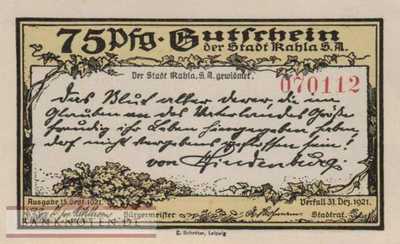 75 Pfg. Gutschein
der Stadt Kahla S.A.
Der Stadt Kahla, S.A. gewidmet.
070112
Das Blut aller derer, die im
Glauben an des Vaterlandes Größe
freudig ihr Leben hingegeben haben,
darf nicht vergebens geflossen sein!
von Hindenburg.
Ausgabe 15. Sept. 1921.
Verfall 31. Dez. 1921.
Bürgermeister
Stadtrat.
BANKNOTEN.DE
C. Schröter, Leipzig